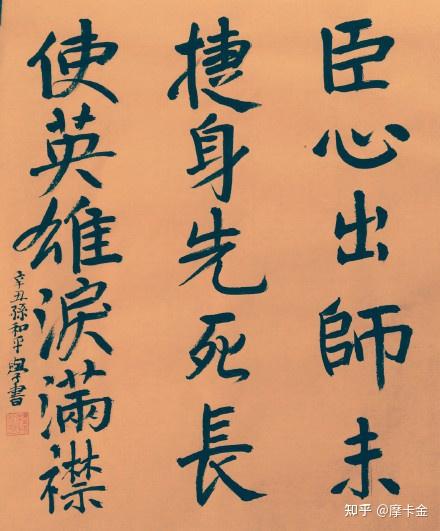 臣心出師未
捷身先死長
使英雄淚滿襟
辛丑孫和平書
知乎 @摩卡金